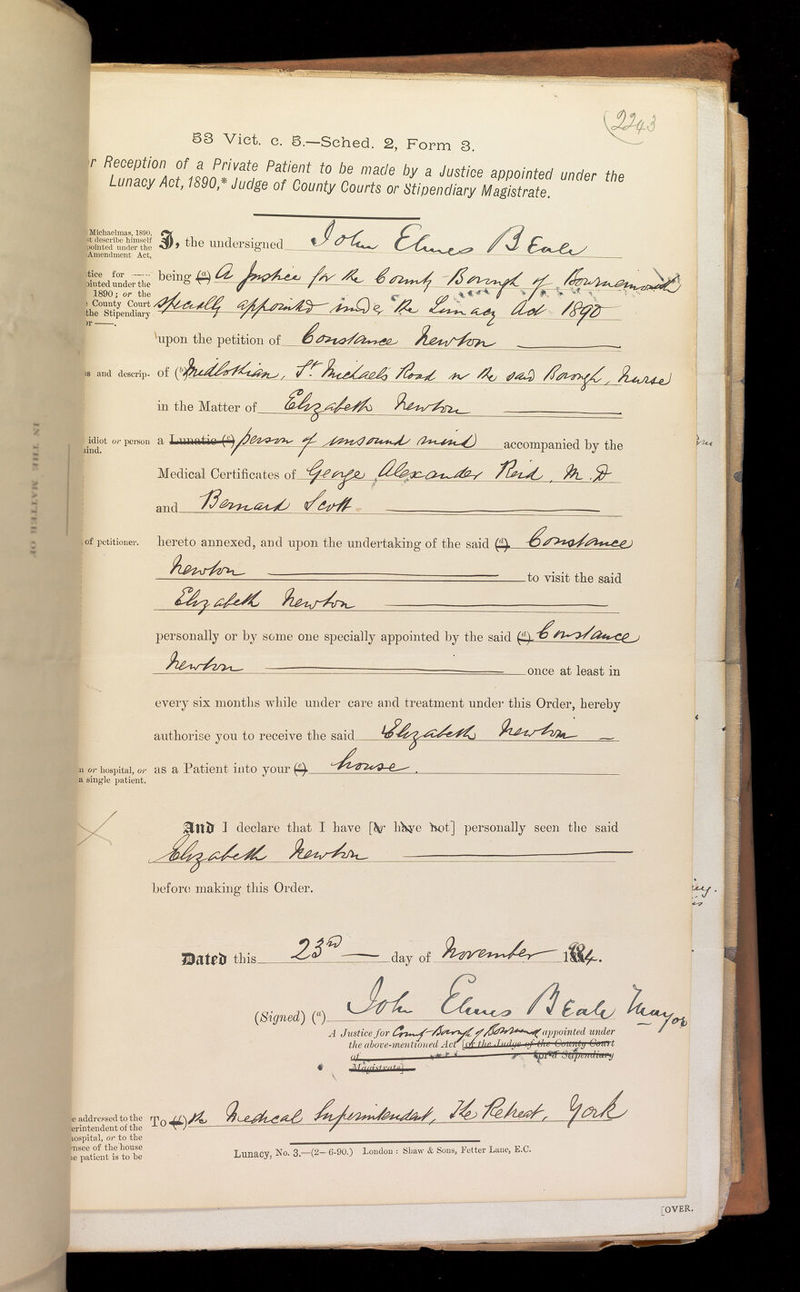 2243
53 Vict. c. 5.—Sched. 2, Form 3.
r Reception of a Private Patient to be made by a Justice appointed under the
Lunacy Act, 1890,* Judge of County Courts or Stipendiary Magistrate.
Michaelmas, 1890,
st describe himself
pointed under the
Amendment Act,
I, the undersigned John Elmes Beale
tice for ——
ointed under the
1890; or the
County Court
the Stipendiary
or ——.
being (a) a Justice for the County Borough of Bournemouth
specially appointed under the Lunacy Act 1890
upon the petition of Constance Newton
is and descrip-
of (b) Midlothian, St. Michaels Road in the said Borough, Nurse
in the Matter of Elizabeth Newton
idiot or person
ind.
a Lunatic (c) person of unsound mind accompanied by the
Medical Certificates of George Alexander Reid, M.D
and Bernard Scott
of petitioner.
hereto annexed, and upon the undertaking of the said (d) Constance
Newton to visit the said
Elizabeth Newton
personally or by some one specially appointed by the said (d) Constance
Newton once at least in
every six months while under care and treatment under this Order, hereby
authorise you to receive the said Elizabeth Newton
n or hospital, or
a single patient.
as a Patient into your (e) house.
And I declare that I have [or have not] personally seen the said
Elizabeth Newton
before making this Order.
Dated this 23rd day of November 1894.
(Signed) John Elmes Beale Mayor
A Justice for County Borough of Bournemouth appointed under
the above-mentioned Act [or the Judge of the County Court
of or a Stipendiary
Magistrate].
e addressed to the
erintendent of the
ospital, or to the
nsee of the house
e patient is to be
To the Medical Superintendent, The Retreat, York
Lunacy, No. 3.—(2—6-90.) London: Shaw & Sons, Fetter Lane, E.C.
[OVER.
IN THE MATTER OF